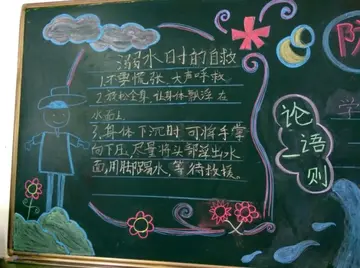 溺水时的自救
1.不要慌张、大声呼救
2.放松全身、让身体飘浮在
水面上
3.身体下沉时可将手掌
向下压,尽量将头部浮出水
面,用脚踢水,等待救援。
论语
一则
防
学